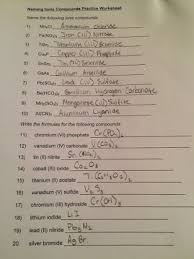 Naming Ionic Compounds Practice Worksheet
Name the following ionic compounds:
1) NH₄Cl Ammonium chloride
2) Fe(NO₃)₃ Iron (III) Nitrate
3) Titanium (III) Bromide
4) Copper (I) Phosphide
5) Tin (IV) Selenide
6) GaAs Gallium Arsenide
7) Pb(SO₄)₂ Lead (IV) Sulfate
8) Be(HCO₃)₂ Beryllium Hydrogen Carbonate
9) Mn₂(SO₃)₃ Manganese (III) Sulfite
10) Al(CN)₃ Aluminum Cyanide
Write the formulas for the following compounds:
11) chromium (VI) phosphate Cr(PO₄)₂
12) vanadium (IV) carbonate V(CO₃)₂
13) tin (II) nitrite Sn(NO₂)₂
14) cobalt (III) oxide Co₂O₃
15) titanium (II) acetate
16) vanadium (V) sulfide V₂S₅
17) chromium (III) hydroxide Cr(OH)₃
18) lithium iodide LiI
19) lead (II) nitride Pb₃N₂
20) silver bromide AgBr